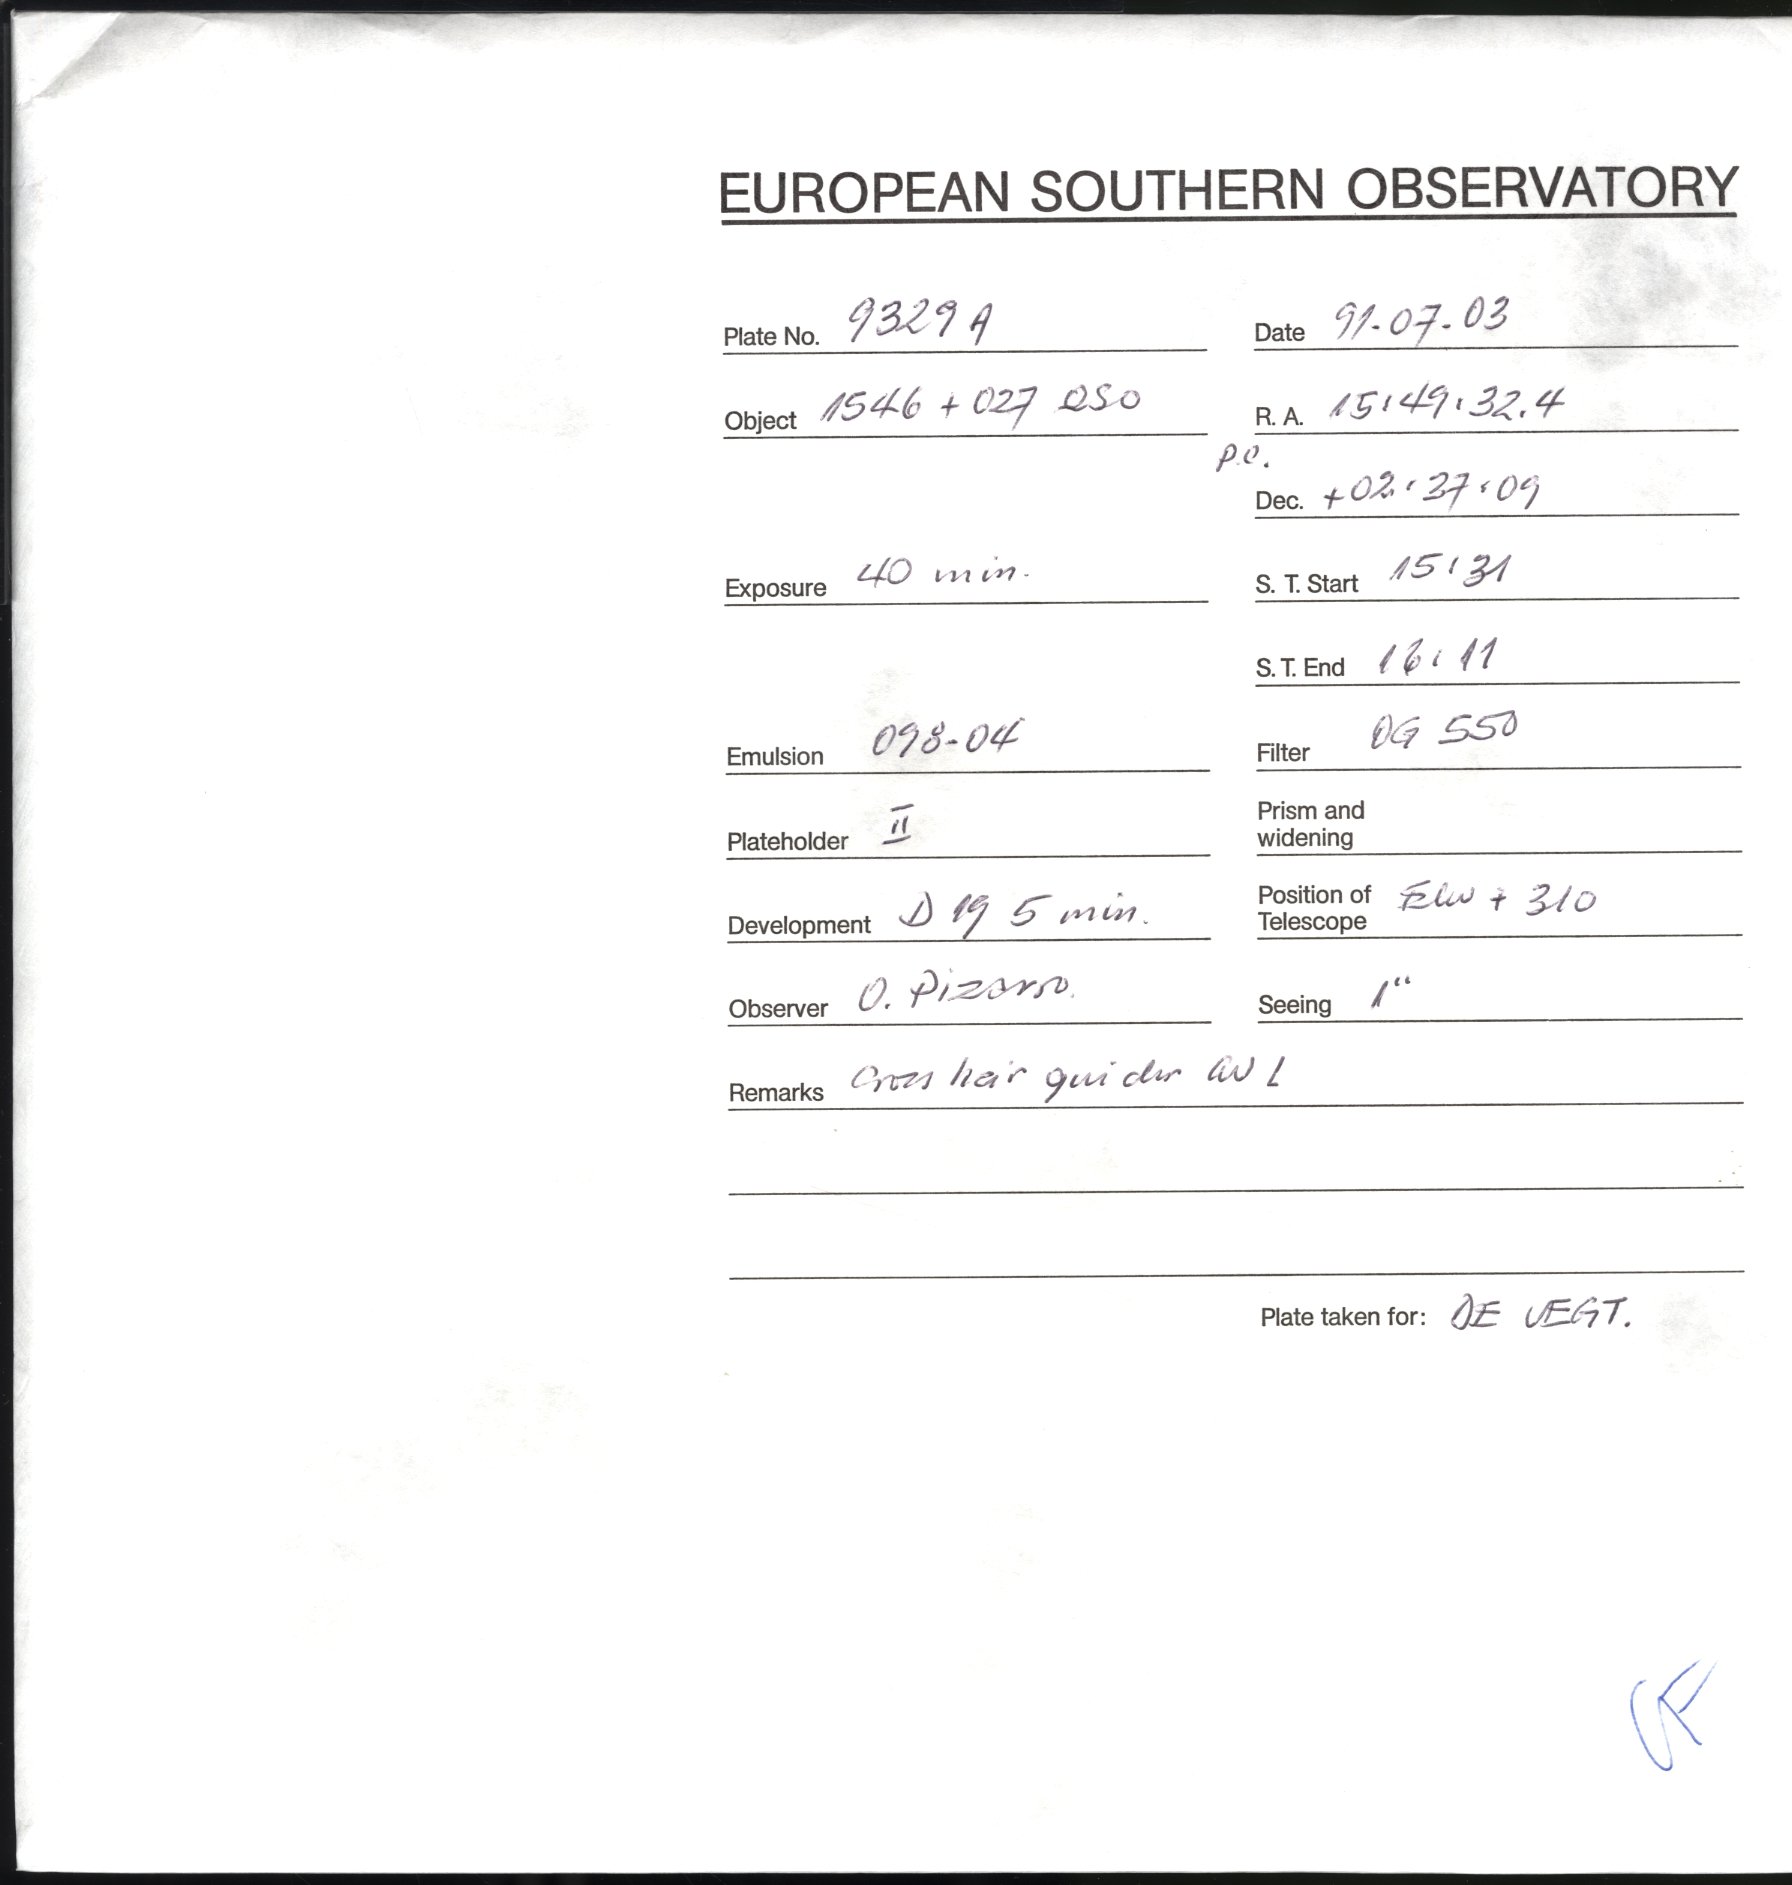 EUROPEAN SOUTHERN OBSERVATORY
Plate No. 9329 A
Date 91-07-03
Object 1546 + 027 QSO
R. A. 15:49:32.4
P.C.
Dec. +02:37:09
Exposure 40 min.
S. T. Start 15:31
S. T. End 16:11
Emulsion 098-04
Filter OG 550
Plateholder II
Prism and
widening
Development D 19 5 min.
Position of
Telescope + 310
Observer O. Pizarro.
Seeing 1"
Remarks Cross hair guider
Plate taken for: DE VEGT.